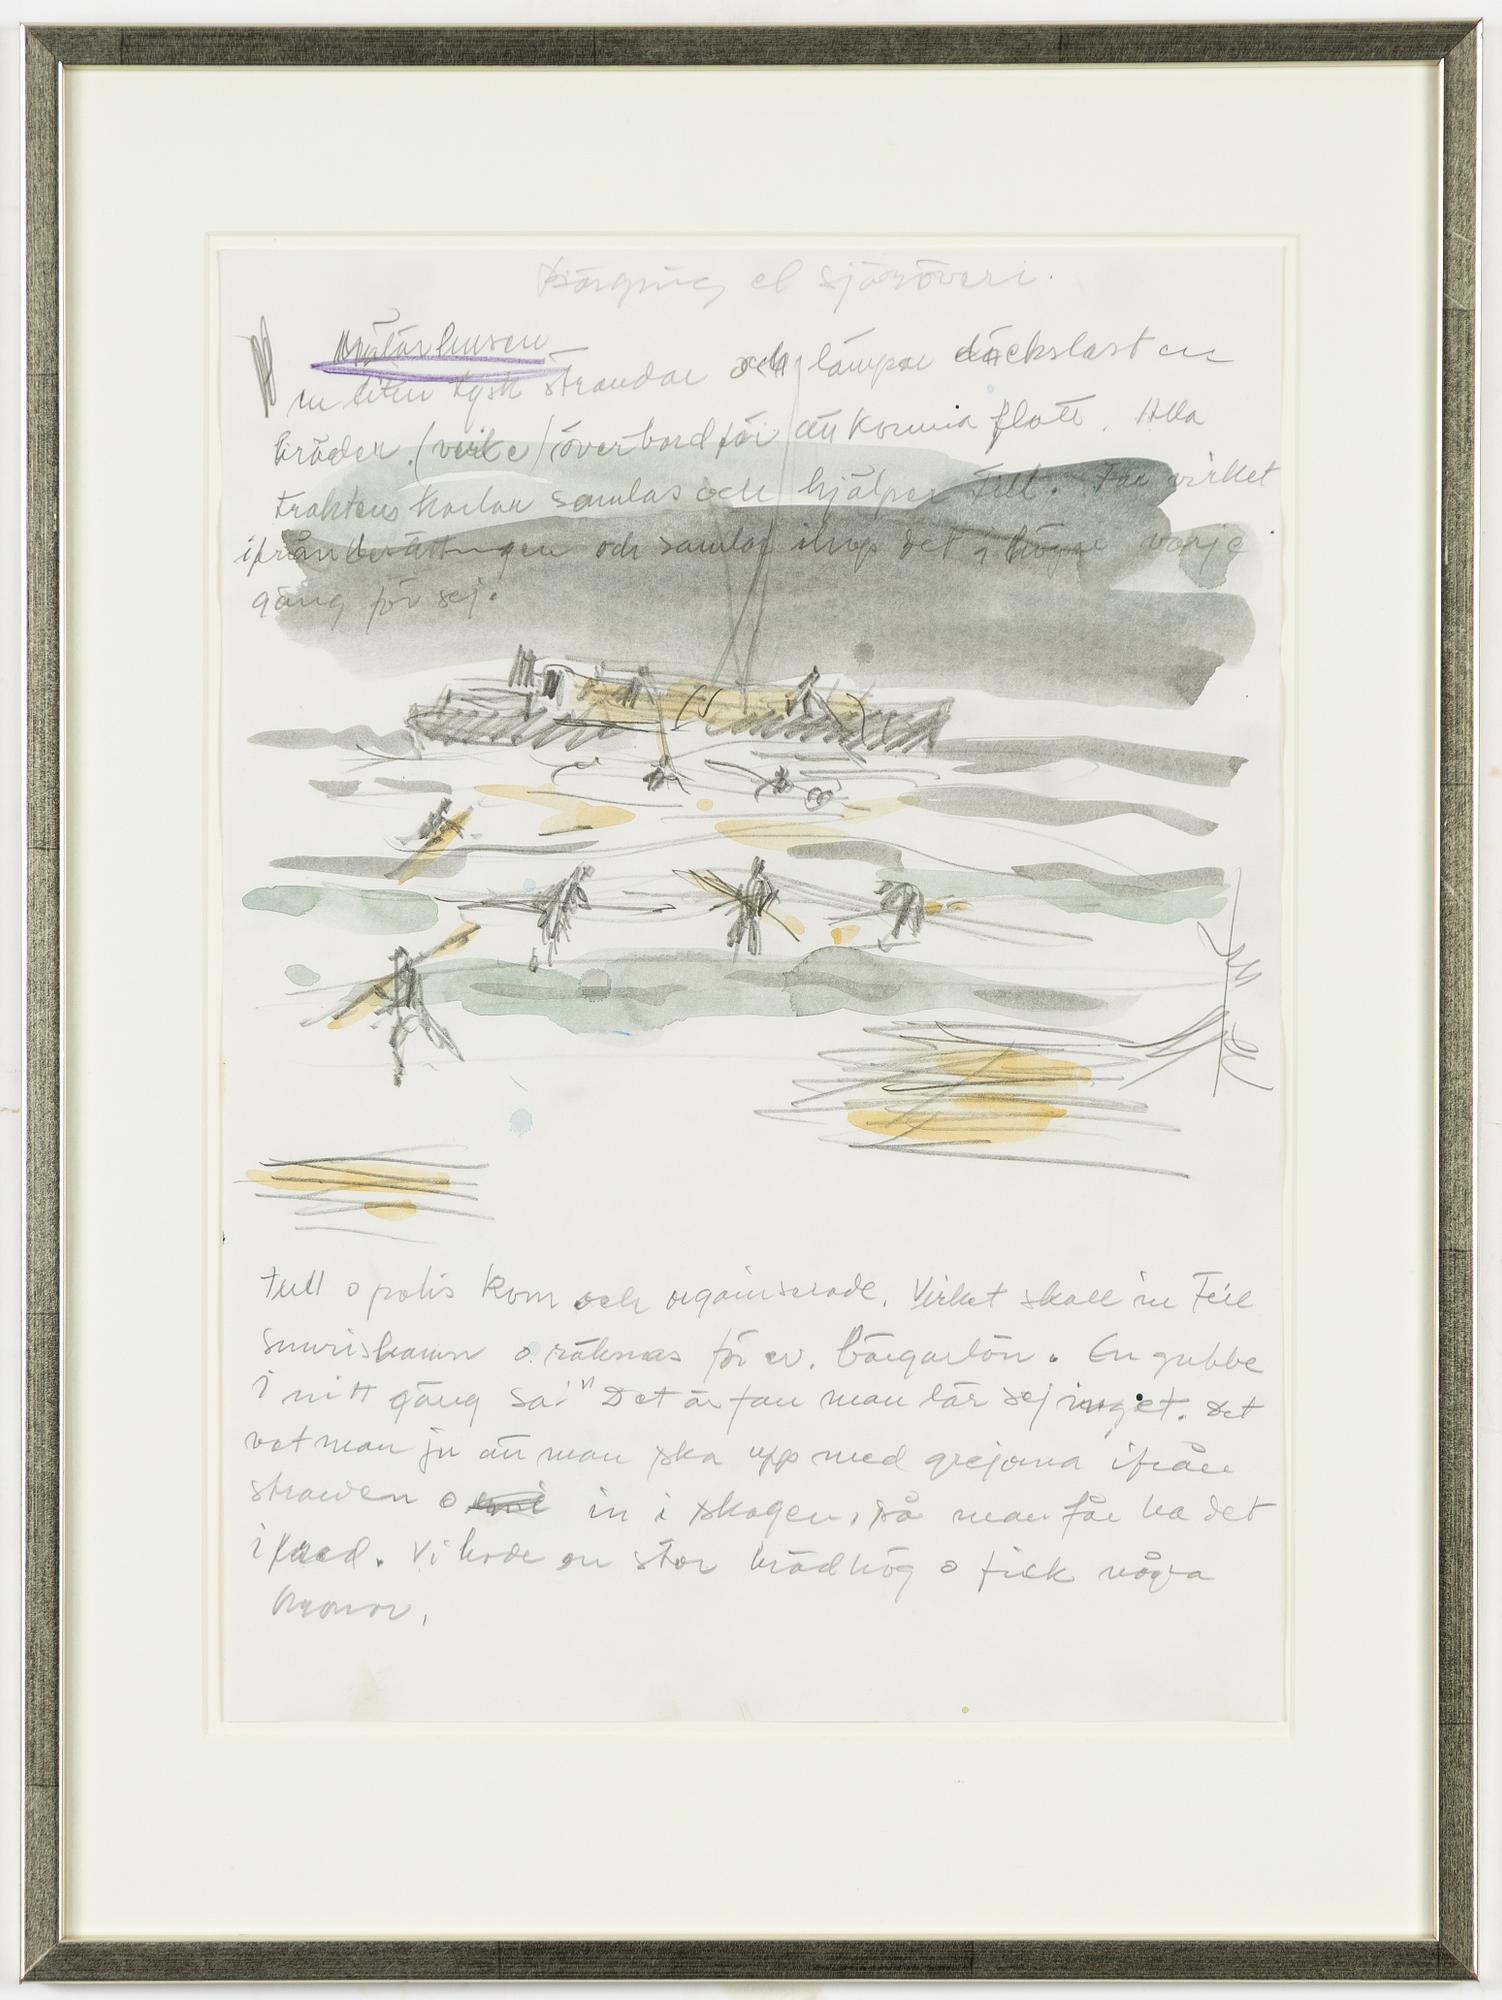 Bärgning el sjöröveri.
Mälarhusen
en liten tysk strandar och lämpar däckslasten
bräder. (virke) överbord för att komma flott. Alla
traktens karlar samlas och hjälper till. Tar virket
ifrån besättningen och samlar ihop det i högar varje
gäng för sej.
tull o polis kom och organiserade. Virket skall in till
Simrishamn o. räknas för ev. bärgarlön. En gubbe
i mitt gäng sa: "Det är fan man lär sej inget. Det
vet man ju att man ska upp med grejorna ifrån
stranden o in i skogen, så man får ha det
i fred. Vi hade en stor brädhög o fick några
kronor.